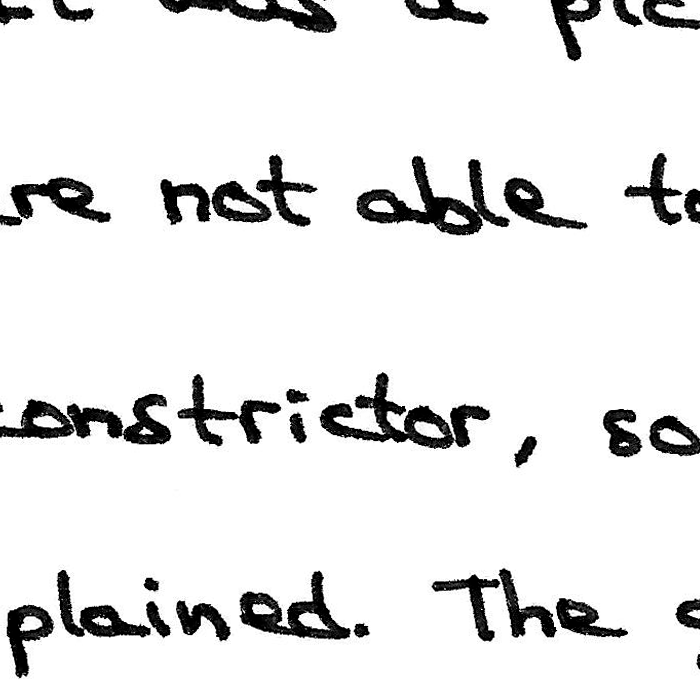 was a pic
re not able to
constrictor, so
plained. The